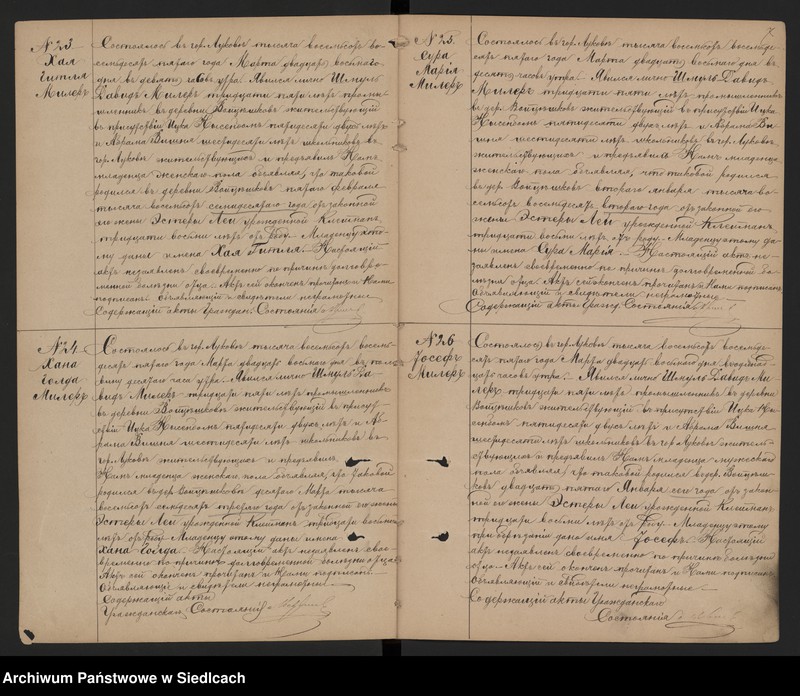 № 23.
Хая
Гитля
Милеръ
Состоялось въ гор. Луковѣ тысяча восемьсотъ во-
семьдесятъ пятаго года Марта двадцать восьмаго
дня въ девять часовъ утра. Явился лично Шмуль
Давидъ Милеръ тридцати пяти лѣтъ промы-
шленникъ въ деревни жительствующій
въ присутствіи Ицка пятидесяти двухъ лѣтъ
и Абрама Вишня шестидесяти лѣтъ школьниковъ въ
гор. Луковѣ жительствующихъ и предъявилъ Намъ
младенца женскаго пола объявляя, что таковой
родился въ деревни пятаго февраля
тысяча восемьсотъ семидесятаго года отъ законной
его жены Эстеры Леи урожденной Клейманъ
тридцати восьми лѣтъ отъ роду. Младенцу это-
му даны имена Хая Гитля. Настоящій
актъ незаявленъ своевременно по причинѣ долговре-
менной болезни отца. Актъ сей оконченъ прочитанъ и Нами
подписанъ объявляющій и свидѣтели неграмотные
Содержащій акты Граждан. Состоянія
№ 24.
Хана
Голда
Милеръ
Состоялось въ гор. Луковѣ тысяча восемьсотъ восемь-
десятъ пятаго года Марта двадцать восьмаго дня въ поло-
вину десятаго часа утра. Явился лично Шмуль Да-
видъ Милеръ тридцати пяти лѣтъ промышленникъ
въ деревни жительствующій въ присут-
ствіи Ицка пятидесяти двухъ лѣтъ и Аб-
рама Вишня шестидесяти лѣтъ школьниковъ въ
гор. Луковѣ жительствующихъ и предъявилъ
Намъ младенца женскаго пола объявляя, что таковой
родился въ дер. десятаго Марта тысяча
восемьсотъ семьдесятъ третьяго года отъ законной его жены
Эстеры Леи урожденной Клейманъ тридцати восьми
лѣтъ отъ роду. Младенцу этому даны имена
Хана Голда. Настоящій актъ незаявленъ свое-
временно по причинѣ долговременной болезни отца.
Актъ сей оконченъ прочитанъ и Нами подписанъ
Объявляющій и свидѣтели неграмотные.
Содержащій акты
Гражданскаго Состоянія
№ 25.
Сура
Марія
Милеръ
Состоялось въ гор. Луковѣ тысяча восемьсотъ восемьде-
сятъ пятаго года Марта двадцать восьмаго дня въ
десять часовъ утра. Явился лично Шмуль Давидъ
Милеръ тридцати пяти лѣтъ промышленникъ
въ дер. жительствующій въ присутствіи Ицка
пятидесяти двухъ лѣтъ и Абрама Ви-
шня шестидесяти лѣтъ школьниковъ въ гор. Луковѣ
жительствующихъ и предъявилъ Намъ младенца
женскаго пола объявляя, что таковой родился
въ дер. втораго января тысяча во-
семьсотъ восемьдесятъ втораго года отъ законной его
жены Эстеры Леи урожденной Клейманъ
тридцати восьми лѣтъ отъ роду. Младенцу этому да-
ны имена Сура Марія. Настоящій актъ не-
заявленъ своевременно по причинѣ долговременной бо-
лезни отца. Актъ сей оконченъ прочитанъ и Нами подписанъ
Объявляющій и свидѣтели неграмотные
Содержащій акты Гражд. Состоянія
№ 26.
Іосефъ
Милеръ
Состоялось въ гор. Луковѣ тысяча восемьсотъ восемьде-
сятъ пятаго года Марта двадцать восьмаго дня въ
часовъ утра. Явился лично Шмуль Давидъ Ми-
леръ тридцати пяти лѣтъ промышленникъ въ деревни
жительствующій въ присутствіи Ицка
пятидесяти двухъ лѣтъ и Абрама Вишня
шестидесяти лѣтъ школьниковъ въ гор. Луковѣ житель-
ствующихъ и предъявилъ Намъ младенца мужескаго
пола объявляя, что таковой родился въ дер.
двадцать пятаго Января сего года отъ закон-
ной его жены Эстеры Леи урожденной Клейманъ
тридцати восьми лѣтъ отъ роду. Младенцу этому
при обрѣзаніи дано имя Іосефъ. Настоящій
актъ незаявленъ своевременно по причинѣ болезни
отца. Актъ сей оконченъ прочитанъ и Нами подписанъ
Объявляющій и свидѣтели неграмотные.
Содержащій акты Гражданскаго
Состоянія
Archiwum Państwowe w Siedlcach